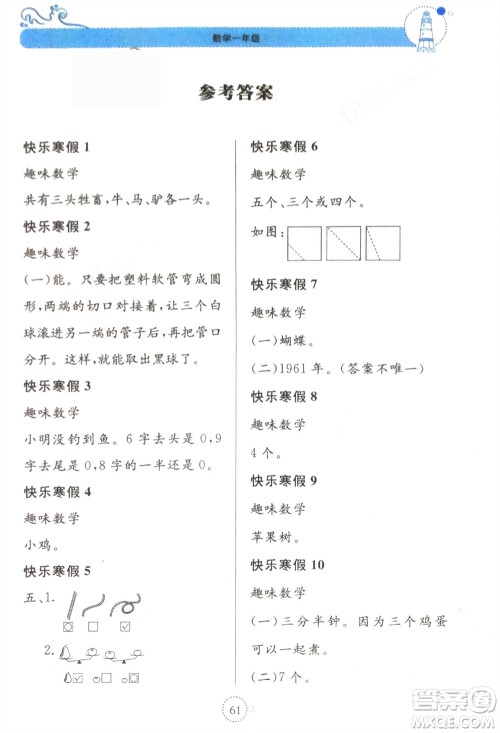 数学一年级
参考答案
快乐寒假 1
趣味数学
共有三头牲畜,牛、马、驴各一头。
快乐寒假 2
趣味数学
(一)能。只要把塑料软管弯成圆
形,两端的切口对接着,让三个白
球滚进另一端的管子后,再把管口
分开。这样,就能取出黑球了。
快乐寒假 3
趣味数学
小明没钓到鱼。6 字去头是 0,9
字去尾是 0,8 字的一半还是 0。
快乐寒假 4
趣味数学
小鸡。
快乐寒假 5
五、1.
2.
快乐寒假 6
趣味数学
五个、三个或四个。
如图:
快乐寒假 7
趣味数学
(一)蝴蝶。
(二)1961 年。(答案不唯一)
快乐寒假 8
趣味数学
4 个。
快乐寒假 9
趣味数学
苹果树。
快乐寒假 10
趣味数学
(一)三分半钟。因为三个鸡蛋
可以一起煮。
(二)7 个。
61